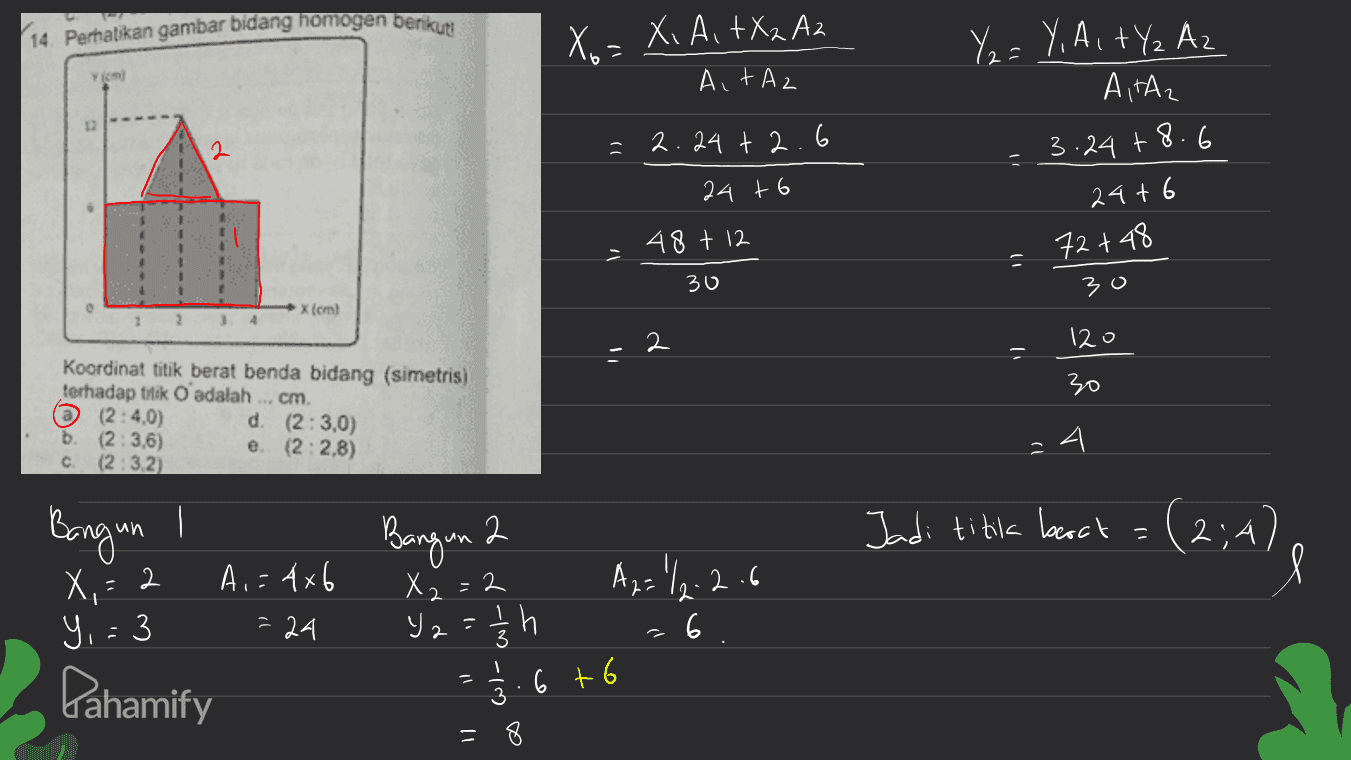 14. Perhatikan gambar bidang homogen berikut!
Y (cm)
12
2
6
1
0
1 2 3 4
X (cm)
Koordinat titik berat benda bidang (simetris)
terhadap titik O adalah ... cm.
a (2 : 4,0)
b. (2 : 3,6)
c. (2 : 3,2)
d. (2 : 3,0)
e. (2 : 2,8)
X₀ = X₁A₁ + X₂A₂ / A₁ + A₂
= 2.24 + 2.6 / 24 + 6
= 48 + 12 / 30
= 2
Y₂ = Y₁A₁ + Y₂A₂ / A₁ + A₂
= 3.24 + 8.6 / 24 + 6
= 72 + 48 / 30
= 120 / 30
= 4
Bangun 1
X₁ = 2
y₁ = 3
A₁ = 4x6
= 24
Bangun 2
X₂ = 2
y₂ = 1/3 h
= 1/3 . 6 + 6
= 8
A₂ = 1/2 . 2 . 6
= 6.
Jadi titik berat = (2;4)
Pahamify